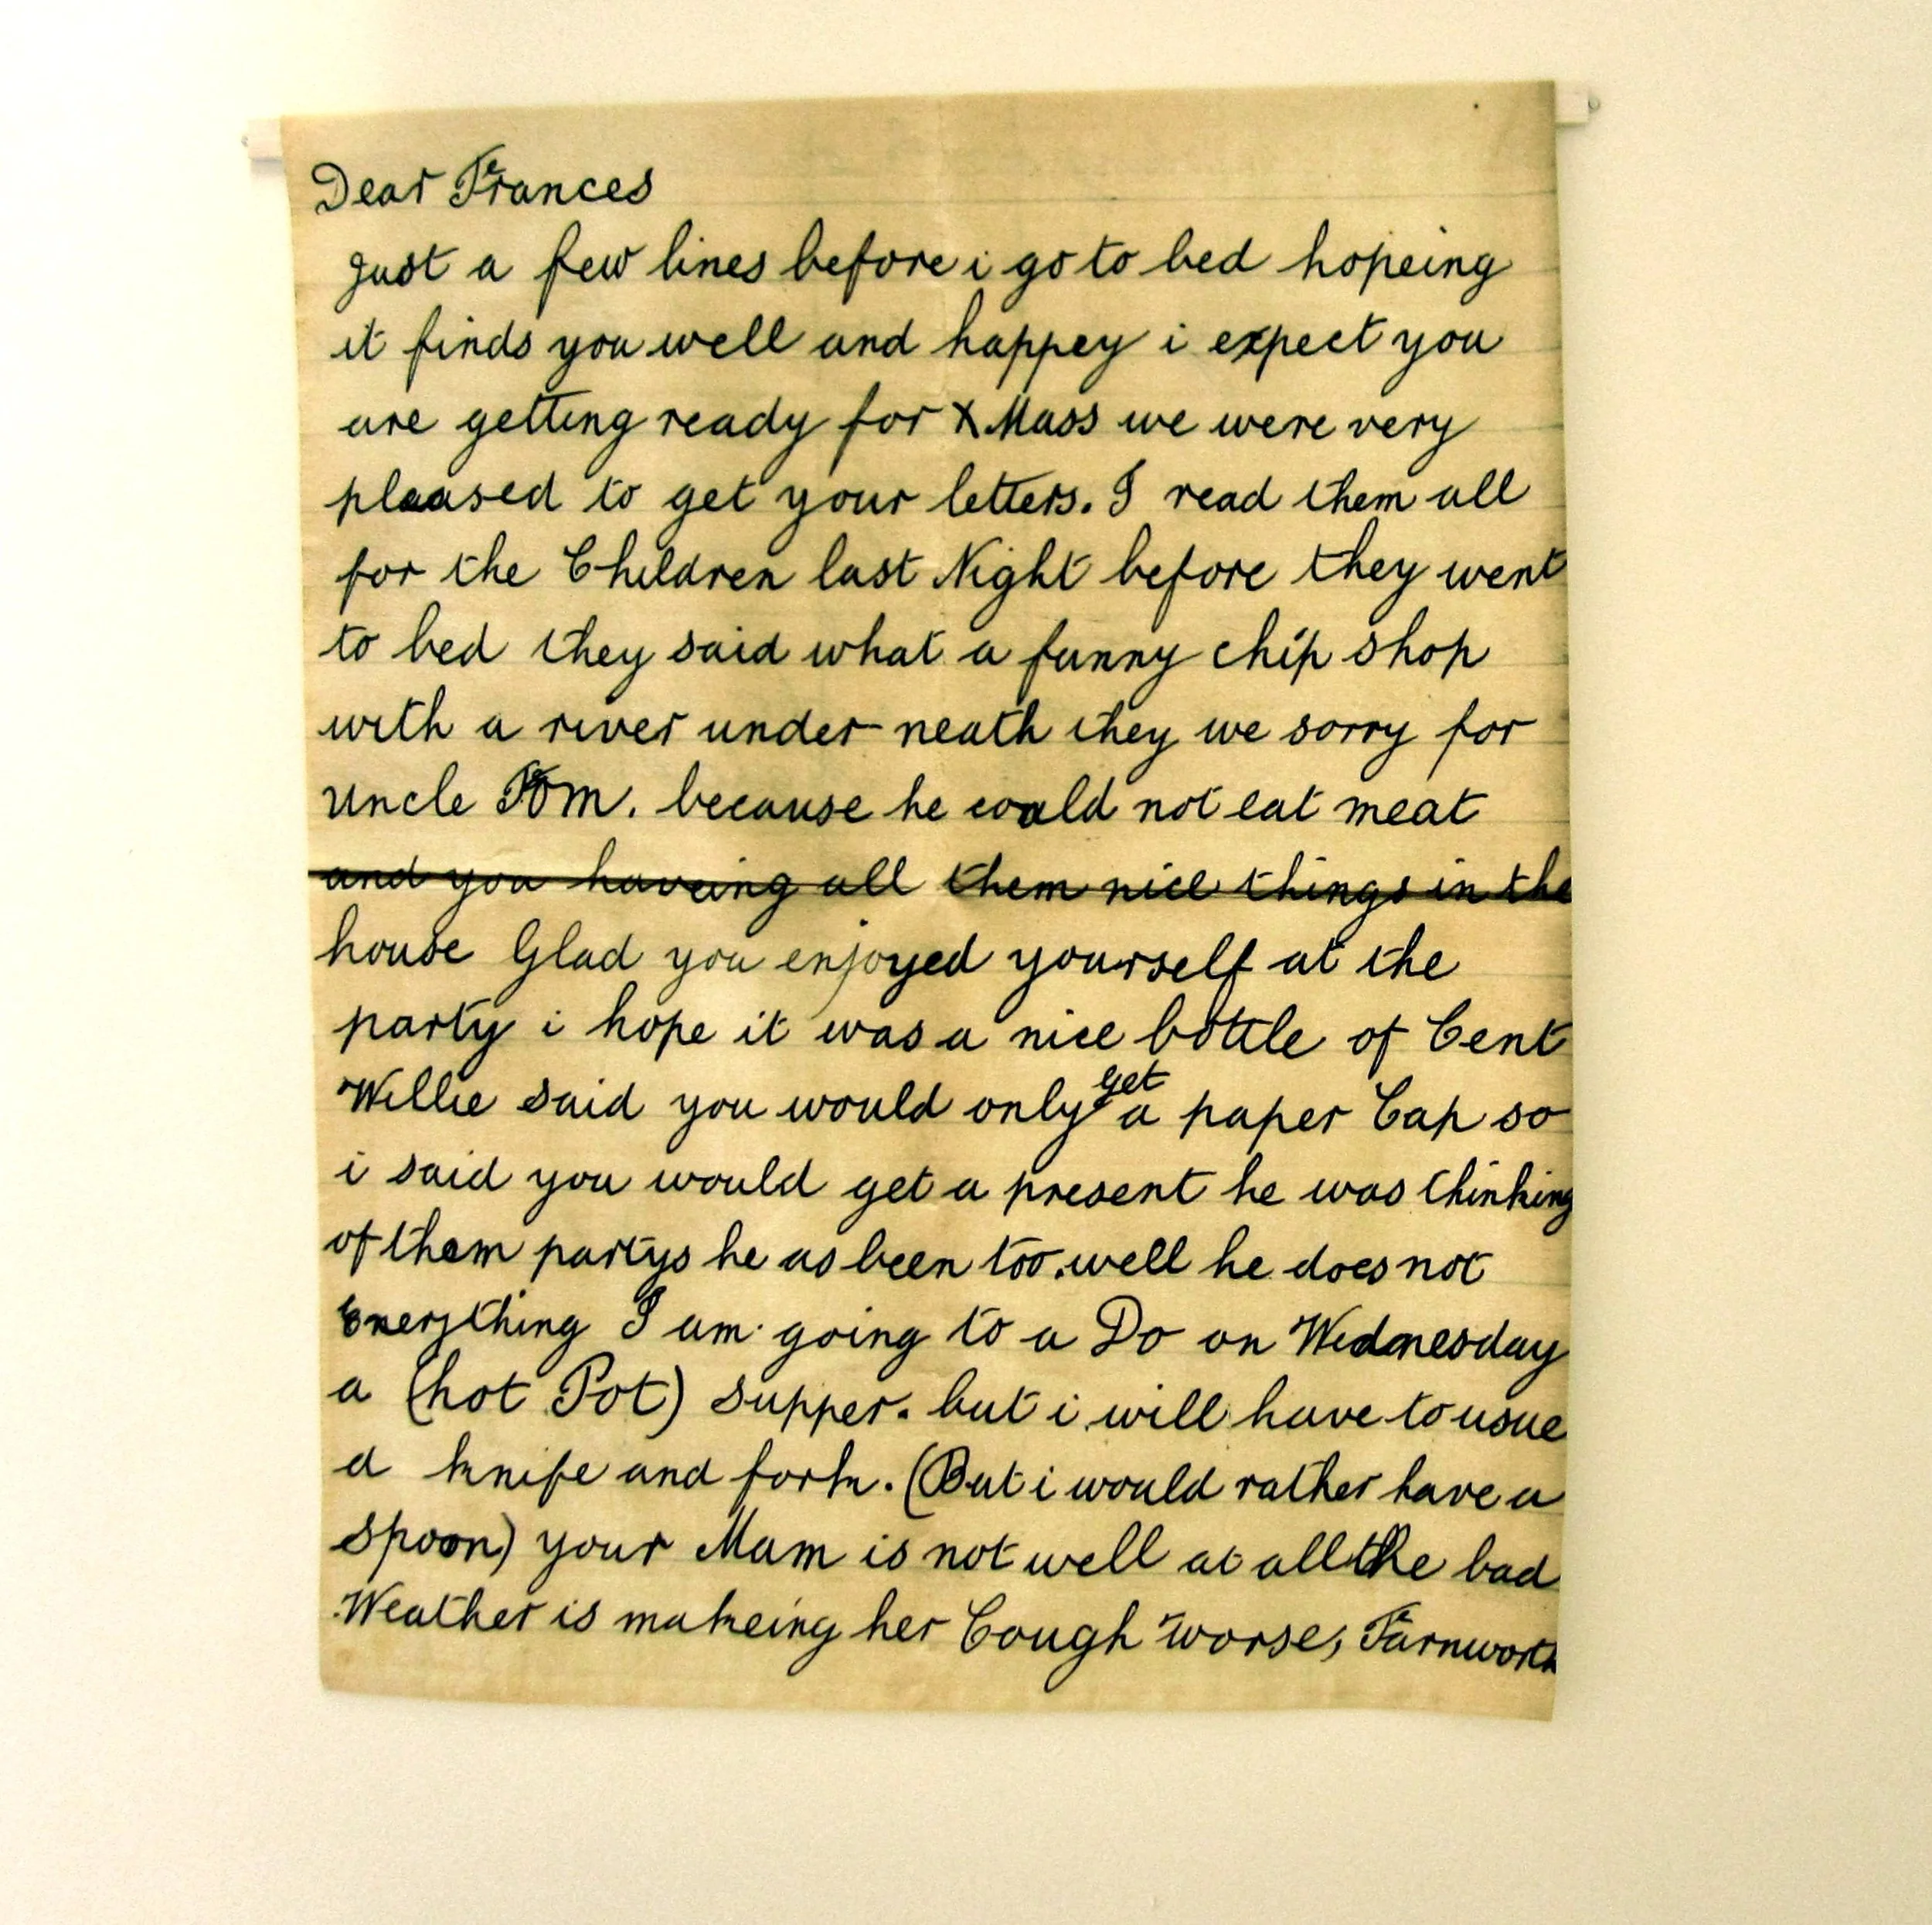 Dear Frances
just a few lines before i go to bed hopeing
it finds you well and happey i expect you
are getting ready for X Mass we were very
pleased to get your letters. I read them all
for the Children last Night before they went
to bed they said what a funny chip shop
with a river under neath they we sorry for
uncle Tom. because he could not eat meat
and you haveing all them nice things in the
house Glad you enjoyed yourself at the
party i hope it was a nice bottle of Cent
Willie said you would only get a paper Cap so
i said you would get a present he was thinking
of them partys he as been too. well he does not
Everything I am going to a Do on Wednesday
a (hot Pot) supper. but i will have to usue
a knife and fork. (But i would rather have a
spoon) your Mam is not well at all the bad
Weather is makeing her Cough worse, Farnworth